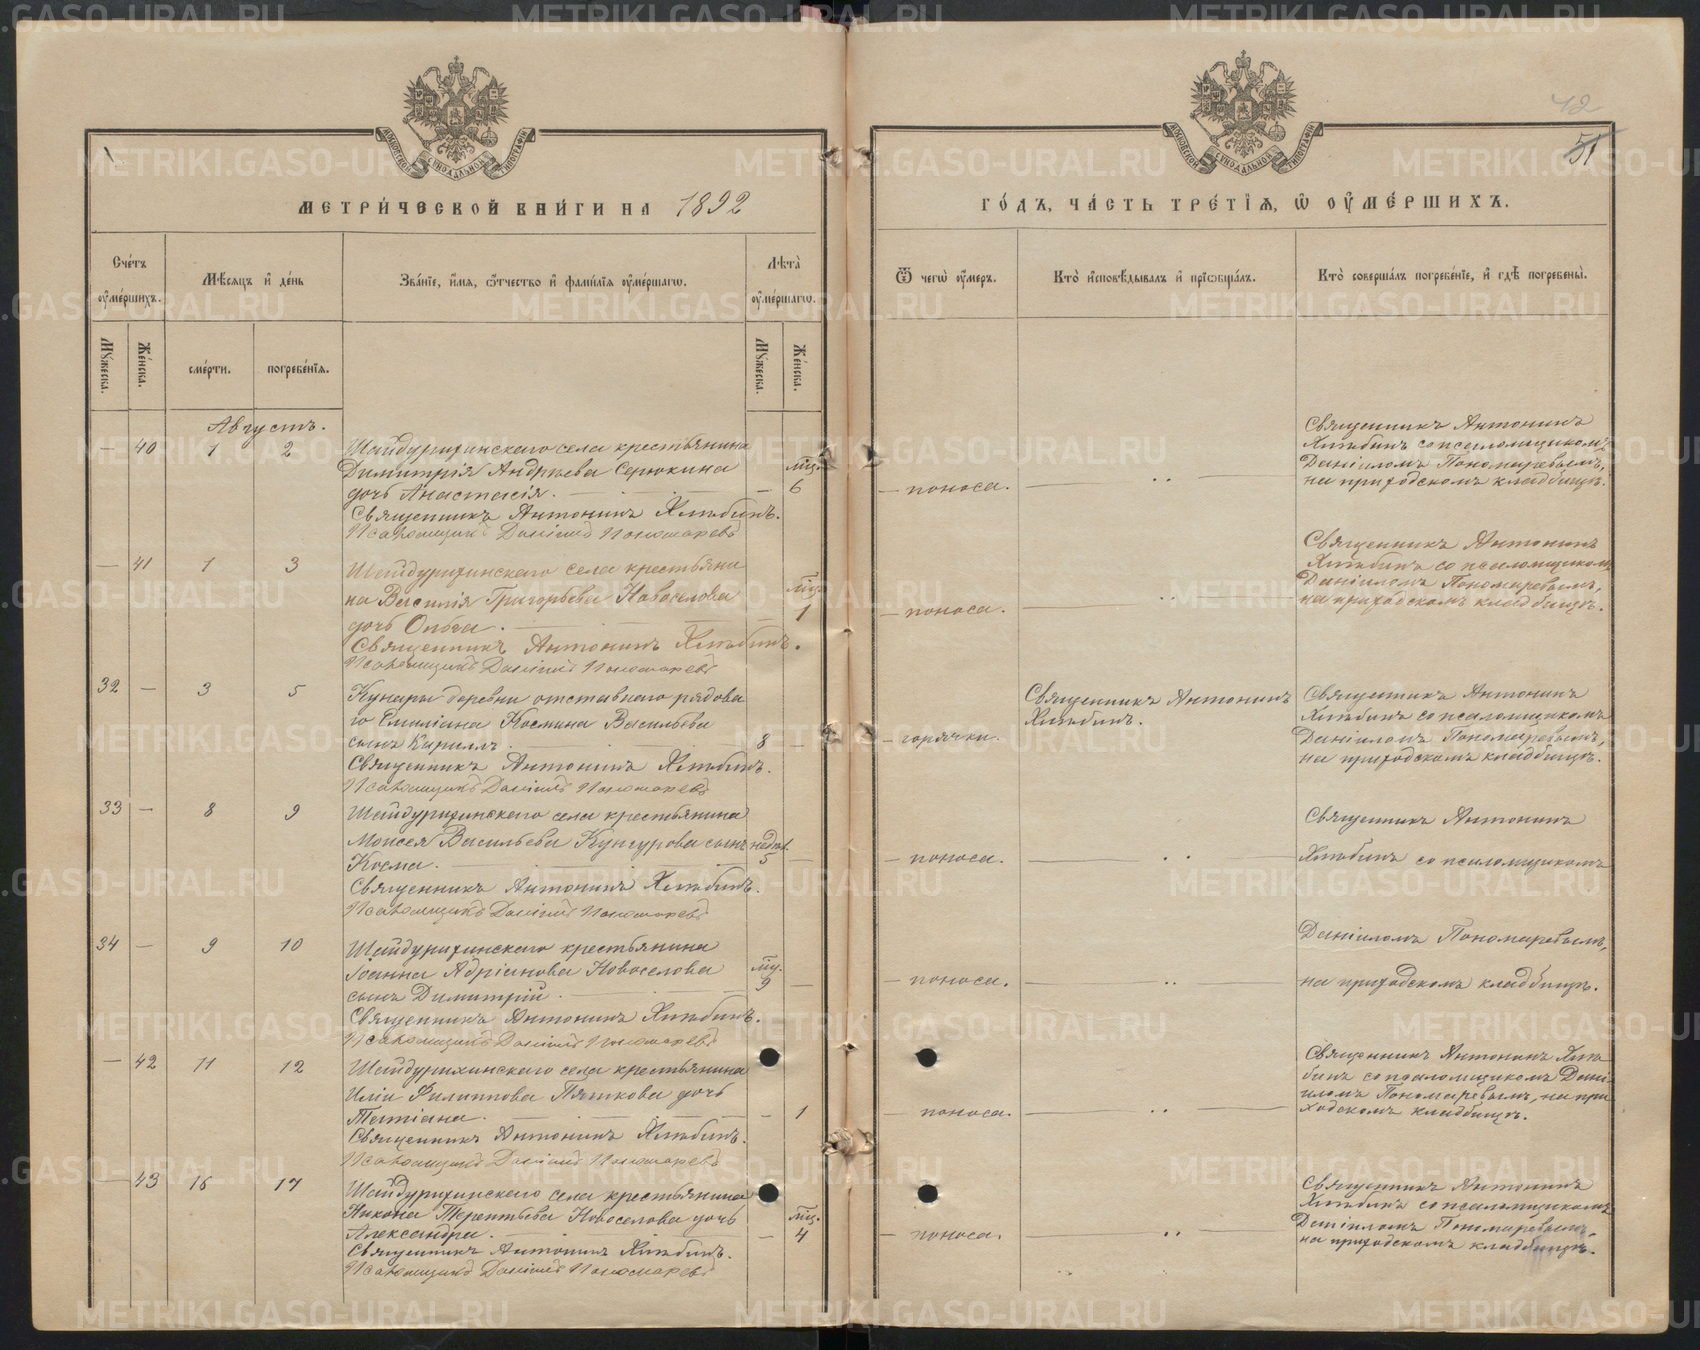 МЕТРИ́ЧЕСКОЙ КНИ́ГИ НА 1892
ГО́ДЪ, ЧА́СТЬ ТРЕ́ТЇѦ, Ѡ ОУ҆МЕ́РШИХЪ.
42
51
Сче́тъ оу҆ме́ршихъ.
Мѣ́сѧцъ и҆ де́нь
Зва́нїе, и҆́мѧ, ѻ҆́тчество и҆ фами́лїѧ оу҆ме́ршагѡ.
Лѣ́та оу҆ме́ршагѡ.
Ѿ чегѡ̀ оу҆́меръ.
Кто̀ и҆сповѣ́дывалъ и҆ прїѡбща́лъ.
Кто̀ соверша́лъ погребе́нїе, и҆ гдѣ̀ погребены̀.
Мꙋ́жеска.
Же́нска.
сме́рти.
погребе́нїѧ.
Мꙋ́жеска.
Же́нска.
Августъ.
— 40 1 2 Шайдурихинскаго села крестьянина
Димитрія Андреева Серюкина мц.
дочь Анастасія. — 6
Священникъ Антонинъ Хлѣбинъ.
Псаломщикъ Даніилъ Пономаревъ
— поноса.
Священникъ Антонинъ
Хлѣбинъ со псаломщикомъ
Даніиломъ Пономаревымъ,
на приходскомъ кладбищѣ.
— 41 1 3 Шайдурихинскаго села крестьяни
на Василія Григорьева Новоселова мц.
дочь Ольга. — 1
Священникъ Антонинъ Хлѣбинъ.
Псаломщикъ Даніилъ Пономаревъ
— поноса.
Священникъ Антонинъ
Хлѣбинъ со псаломщикомъ
Даніиломъ Пономаревымъ,
на приходскомъ кладбищѣ.
32 — 3 5 Кунары деревни отставнаго рядова
го Емиліана Космина Васильева
сынъ Кириллъ. 8 —
Священникъ Антонинъ Хлѣбинъ.
Псаломщикъ Даніилъ Пономаревъ
— горячки.
Священникъ Антонинъ
Хлѣбинъ.
Священникъ Антонинъ
Хлѣбинъ со псаломщикомъ
Даніиломъ Пономаревымъ,
на приходскомъ кладбищѣ.
33 — 8 9 Шайдурихинскаго села крестьянина
Моисея Васильева Кунгурова сынъ недѣл.
Косма. 5 —
Священникъ Антонинъ Хлѣбинъ.
Псаломщикъ Даніилъ Пономаревъ
— поноса.
Священникъ Антонинъ
Хлѣбинъ со псаломщикомъ
34 — 9 10 Шайдурихинскаго крестьянина
Іоанна Адріанова Новоселова мц.
сынъ Димитрій. 9 —
Священникъ Антонинъ Хлѣбинъ.
Псаломщикъ Даніилъ Пономаревъ
— поноса.
Даніиломъ Пономаревымъ,
на приходскомъ кладбищѣ.
— 42 11 12 Шайдурихинскаго села крестьянина
Иліи Филиппова Пяткова дочь
Татіана. — 1
Священникъ Антонинъ Хлѣбинъ.
Псаломщикъ Даніилъ Пономаревъ
— поноса.
Священникъ Антонинъ Хлѣ
бинъ со псаломщикомъ Дані
иломъ Пономаревымъ, на при
ходскомъ кладбищѣ.
— 43 16 17 Шайдурихинскаго села крестьянина
Никона Терентьева Новоселова дочь мц.
Александра. — 4
Священникъ Антонинъ Хлѣбинъ.
Псаломщикъ Даніилъ Пономаревъ
— поноса.
Священникъ Антонинъ
Хлѣбинъ со псаломщикомъ
Даніиломъ Пономаревымъ,
на приходскомъ кладбищѣ.
METRIKI.GASO-URAL.RU